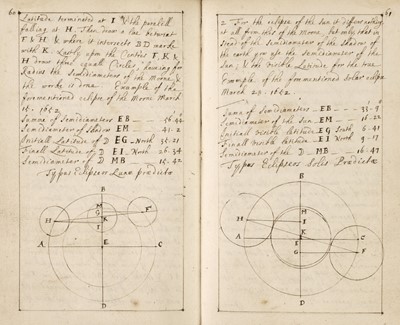 60
Latitude terminated at I & the parallell
falling at H. Then draw a line betweene
F & H & where it intersects BD marke
with K. Lastly upon the Centers F, K, &
H draw three equall Circles, having for
Radius the Semidiameter of the Moone &
the worke is done. Example of the
forementioned eclipse of the Moone March
15. 1652.
Summe of Semidiameters EB 56.44
Semidiameter of shadow EM 41.2
Initiall Latitude of D EG North 33.21
Finall Latitude of D EI North 26.54
Semidiameter of D MB 15.42
Typus Eclipseos Lunæ predictæ
B
M
G
F
K
H
I
A
E
C
D
2 For the eclipse of the Sun it differs nothing
at all from this of the Moone, but only that in
stead of the Semidiameter of the shadow of
the earth you use the Semidiameter of the
Sun, & the visible Latitude for the true
Example of the forementioned Solar eclipse
March 29. 1652.
Summe of Semidiameters EB 33.9
Semidiameter of the Sun EM 16.22
Initiall visible latitude EG South 6.41
Finall visible latitude EI North 9.17
Semidiameter of the D MB 16.47
Typus Eclipseos Solis Predictæ
B
M
H
I
K
A
E
C
G
F
D